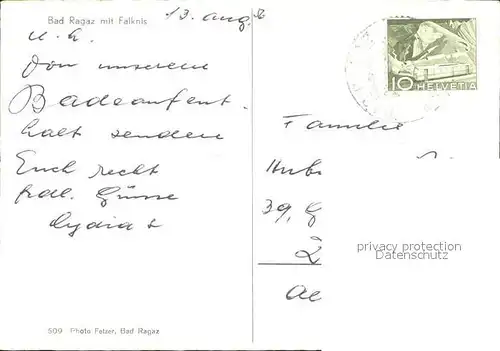 Bad Ragaz mit Falknis
13. Aug.
Von unserem
Badeaufent-
halt senden
Euch recht
frdl. Grüsse
Lydia
509 Photo Fetzer, Bad Ragaz
10 HELVETIA
Familie
39,
privacy protection
Datenschutz